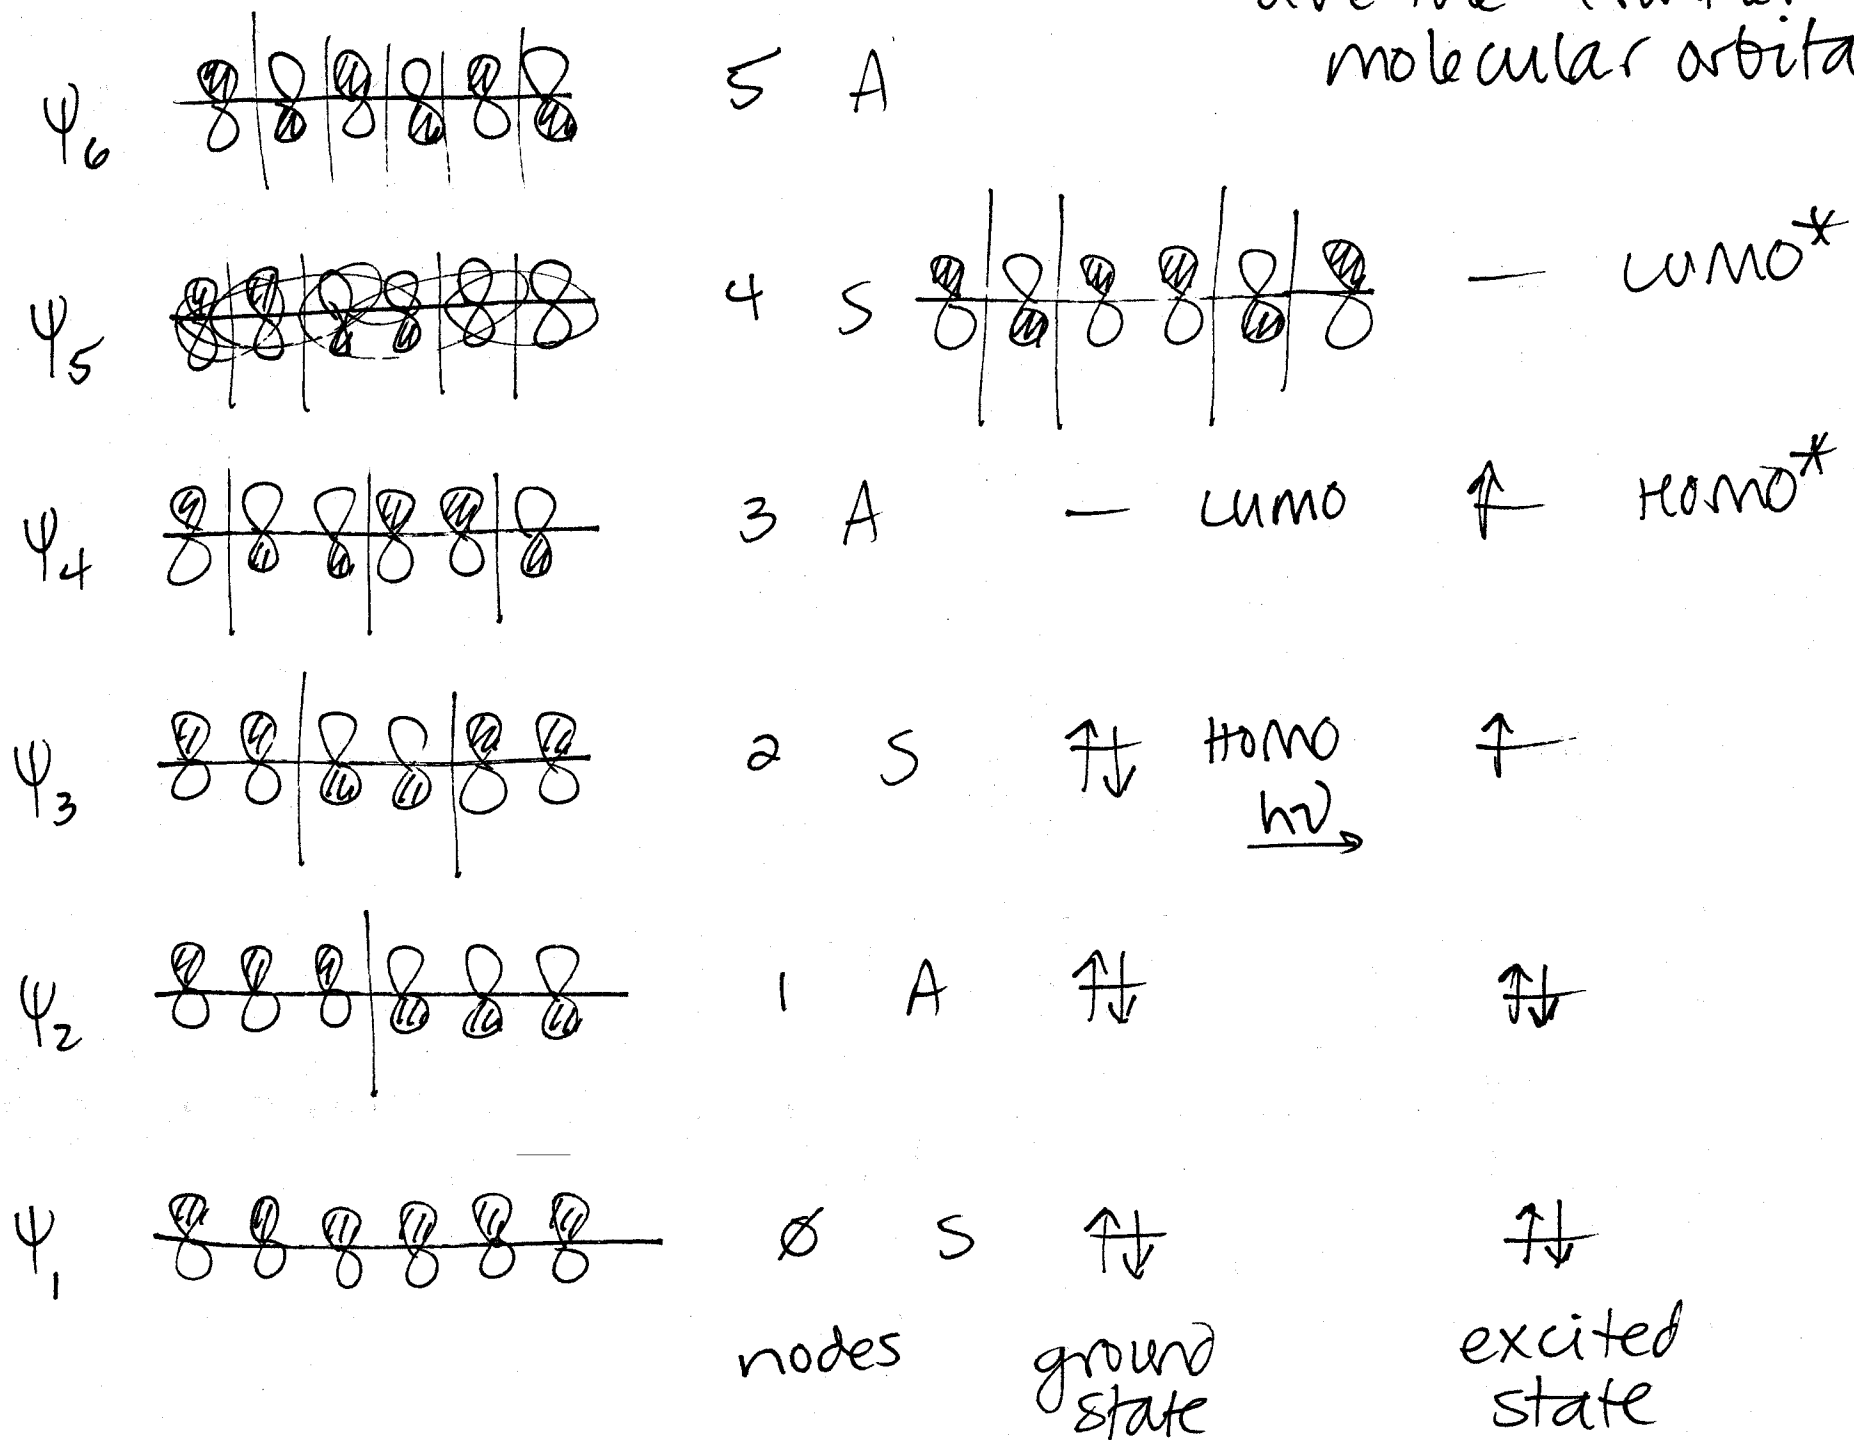 are the
molecular orbita
Ψ6 5 A
Ψ5 4 S — LUMO*
Ψ4 3 A — LUMO ↑ HOMO*
Ψ3 2 S ↑↓ HOMO ↑
hν →
Ψ2 1 A ↑↓ ↑↓
Ψ1 ∅ S ↑↓ ↑↓
nodes ground state excited state